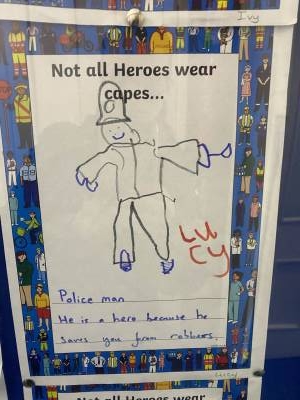 Ivy
Not all Heroes wear
capes...
LU
CY
Police man
He is a hero because he
saves you from robbers.
Not all Heroes wear